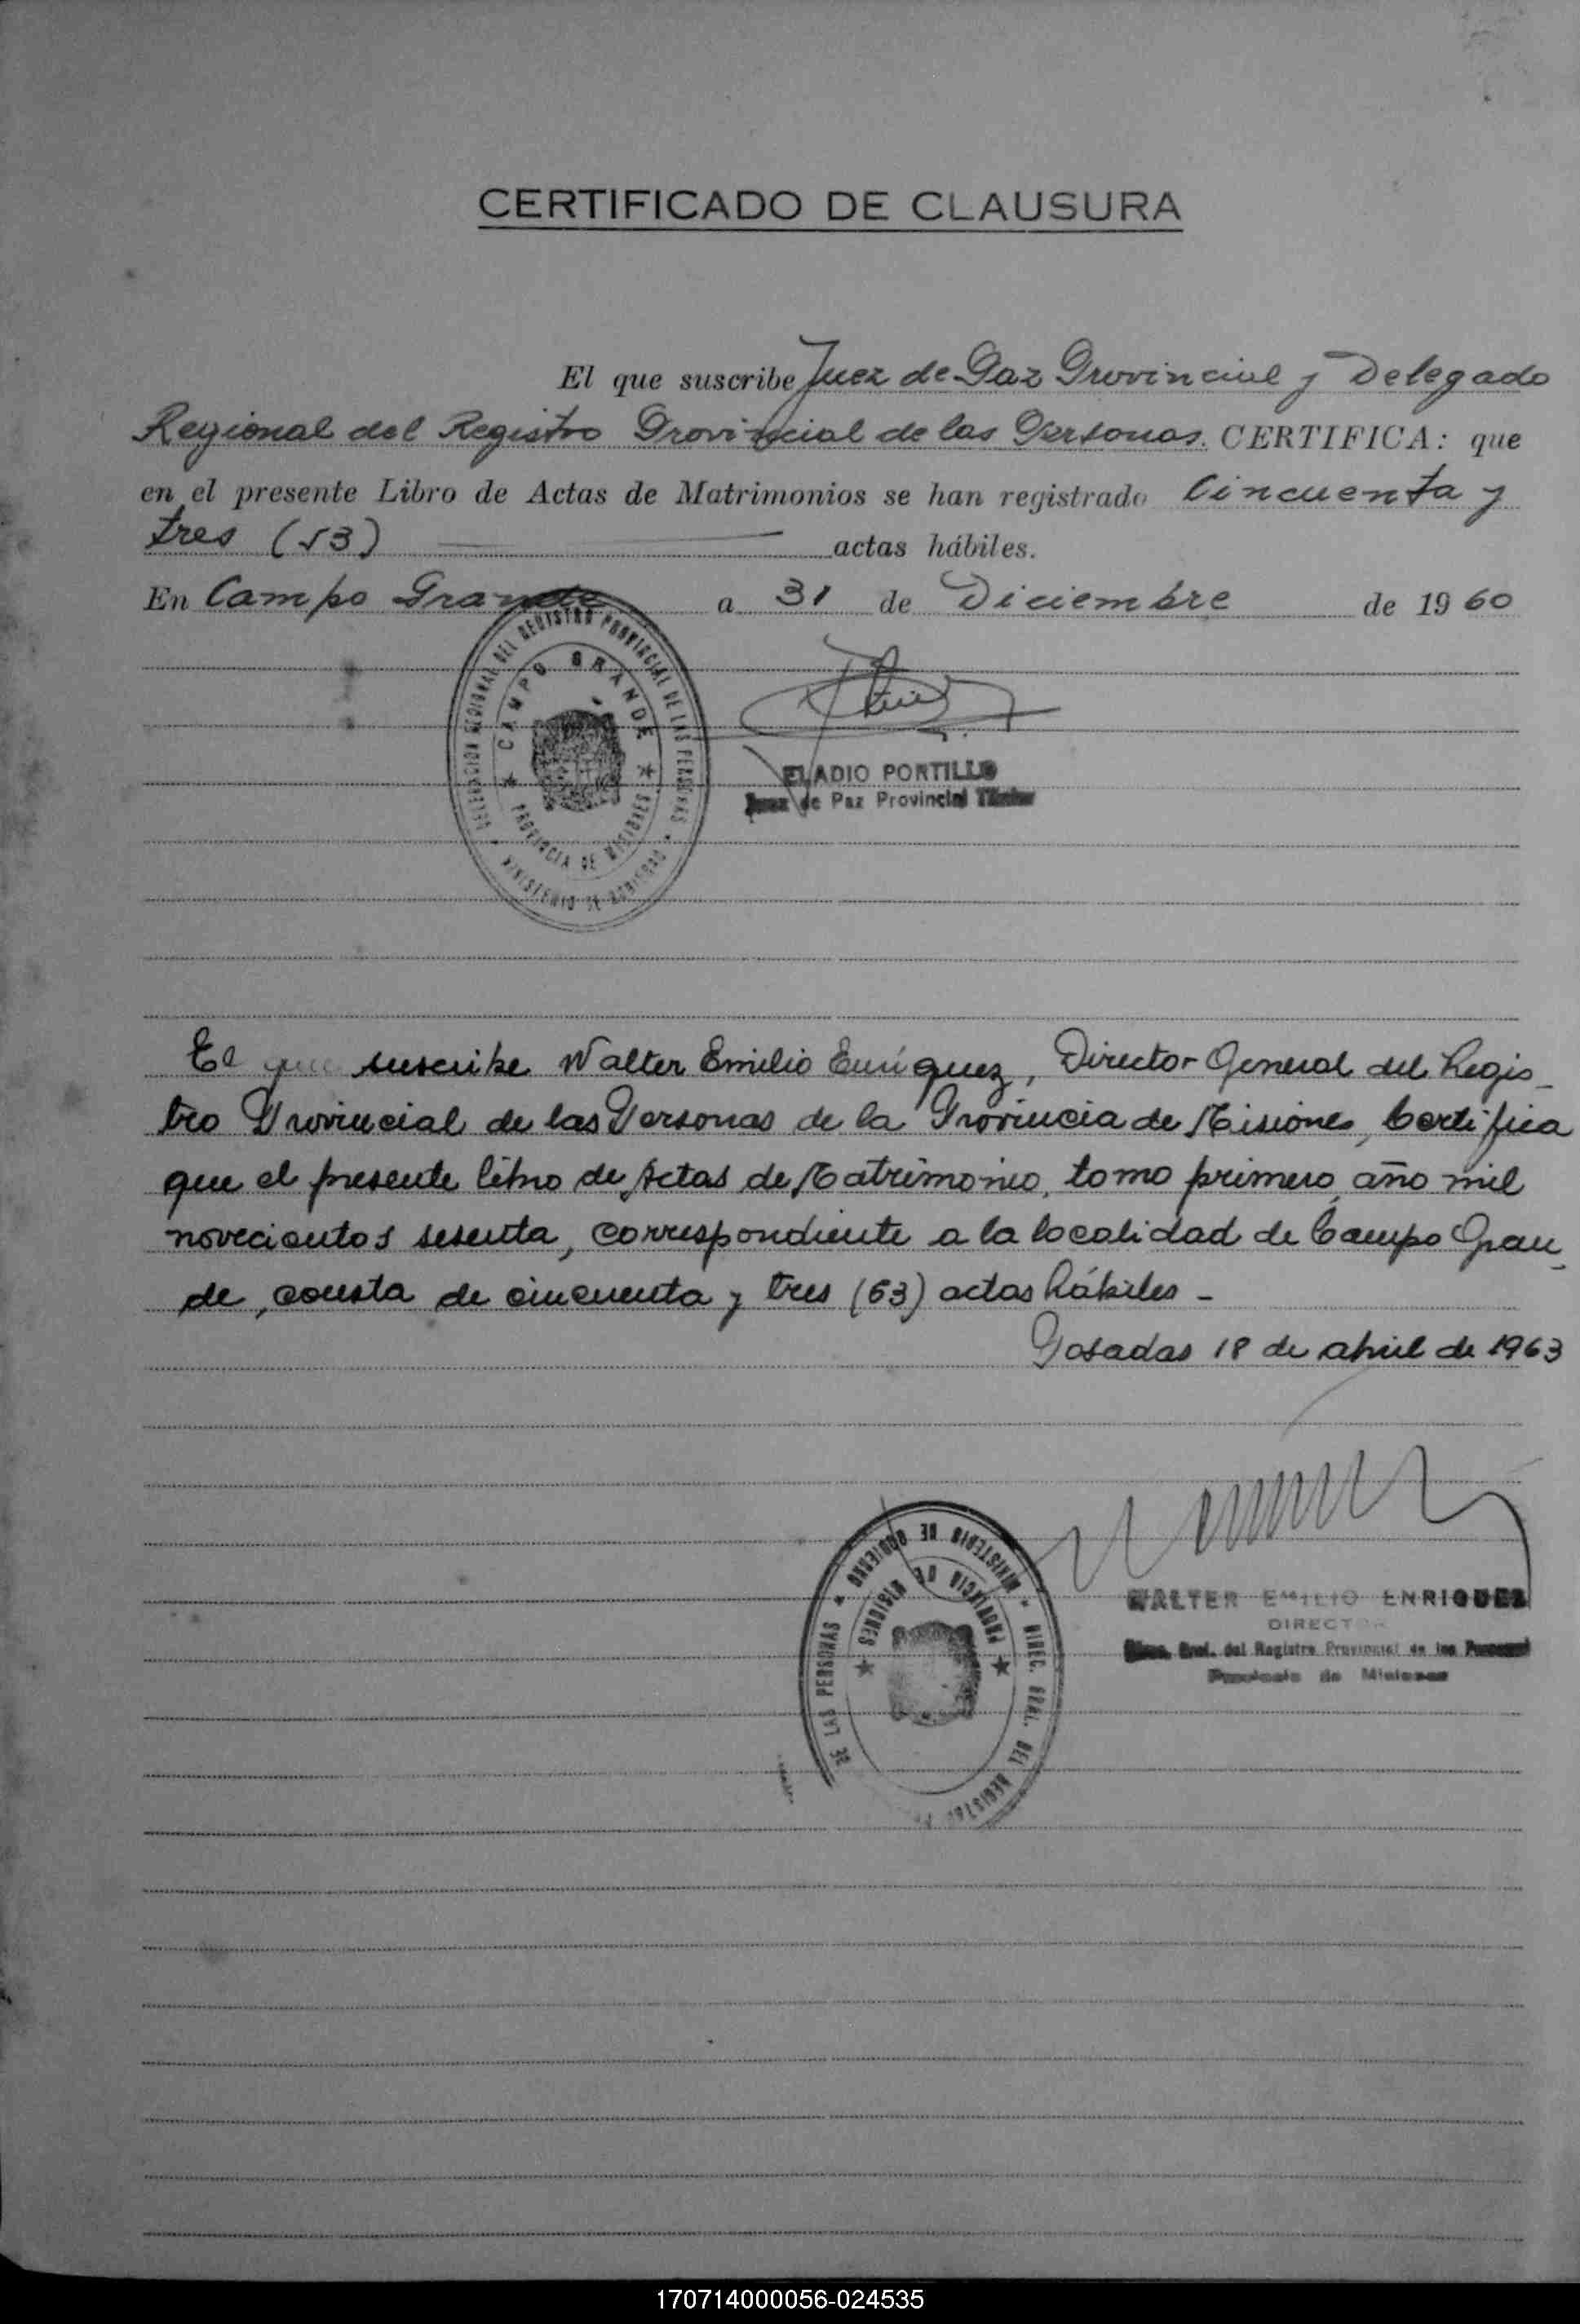 CERTIFICADO DE CLAUSURA
El que suscribe Juez de Paz Provincial y Delegado
Regional del Registro Provincial de las Personas. CERTIFICA: que
en el presente Libro de Actas de Matrimonios se han registrado Cincuenta y
tres (53) actas hábiles.
En Campo Grande a 31 de Diciembre de 1960
DELEGACION REGIONAL DEL REGISTRO PROVINCIAL DE LAS PERSONAS
MINISTERIO DE GOBIERNO
CAMPO GRANDE
PROVINCIA DE MISIONES
ELADIO PORTILLO
Juez de Paz Provincial
El que suscribe Walter Emilio Enríquez, Director General del Regis-
tro Provincial de las Personas de la Provincia de Misiones, Certifica
que el presente libro de Actas de Matrimonio, tomo primero, año mil
novecientos sesenta, correspondiente a la localidad de Campo Gran-
de, consta de cincuenta y tres (53) actas hábiles -
Posadas 18 de abril de 1963
MINISTERIO DE GOBIERNO
DIREC. GRAL. DEL REGISTRO
DE LAS PERSONAS
PROVINCIA DE MISIONES
WALTER EMILIO ENRIQUEZ
DIRECTOR
Gral. del Registro Provincial de las Personas
Provincia de Misiones
170714000056-024535